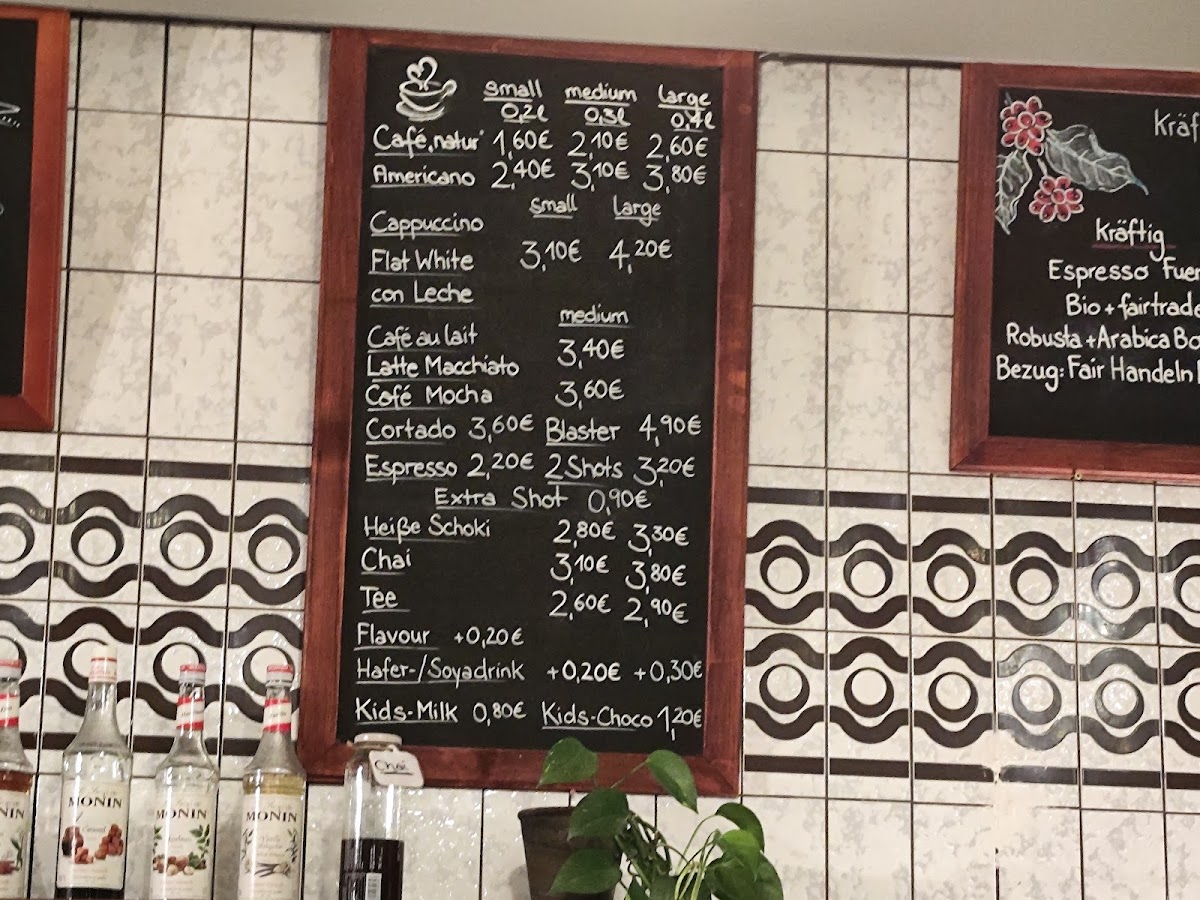 small medium large
0,2l 0,3l 0,4l
Café „natur“ 1,60€ 2,10€ 2,60€
Americano 2,40€ 3,10€ 3,80€
small large
Cappuccino
Flat White 3,10€ 4,20€
con Leche
medium
Café au lait
3,40€
Latte Macchiato
Café Mocha 3,60€
Cortado 3,60€ Blaster 4,90€
Espresso 2,20€ 2 Shots 3,20€
Extra Shot 0,90€
Heiße Schoki 2,80€ 3,30€
Chai 3,10€ 3,80€
Tee 2,60€ 2,90€
Flavour +0,20€
Hafer-/Soyadrink +0,20€ +0,30€
Kids-Milk 0,80€ Kids-Choco 1,20€
Kräf
Kräftig
Espresso Fuer
Bio + fairtrade
Robusta + Arabica Bo
Bezug: Fair Handeln
NIN
MONIN
MONIN
MONIN
Chai